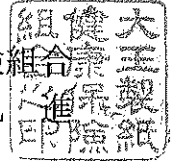 組合
進
大王製紙
健康保険
組合之印